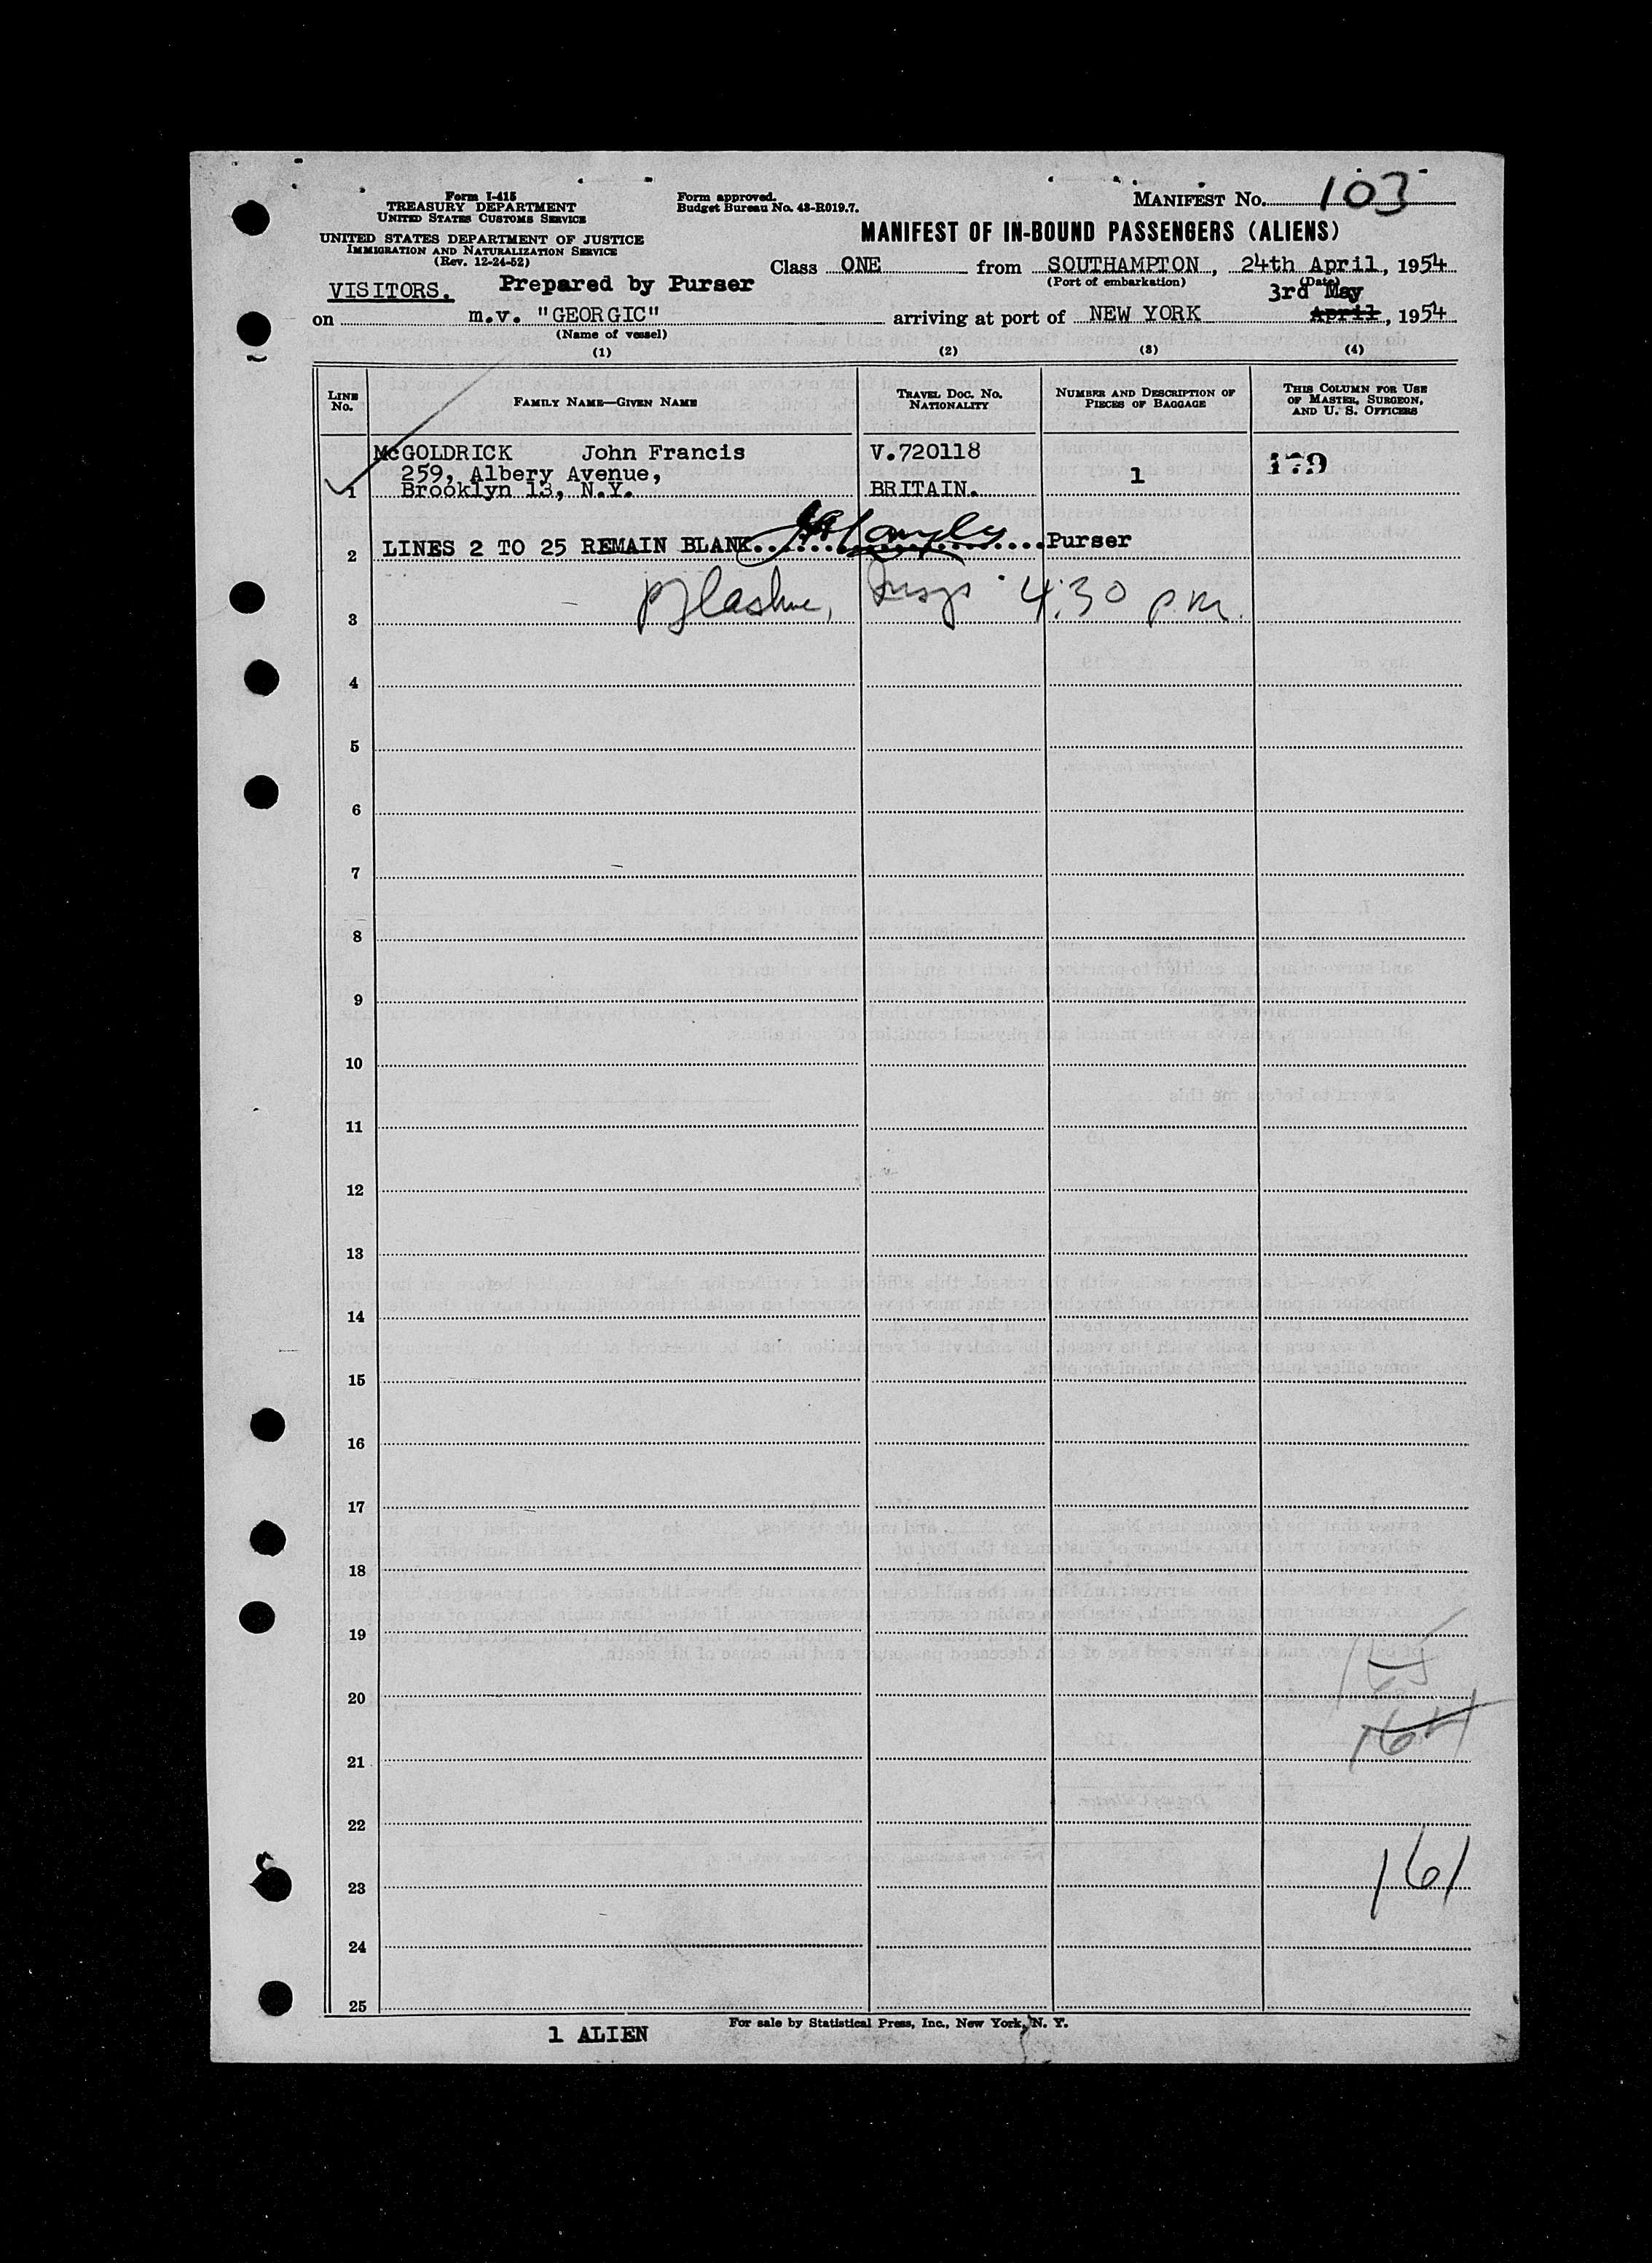 Form I-415
TREASURY DEPARTMENT
UNITED STATES CUSTOMS SERVICE
UNITED STATES DEPARTMENT OF JUSTICE
IMMIGRATION AND NATURALIZATION SERVICE
(Rev. 12-24-52)
Form approved.
Budget Bureau No. 43-R019.7.
MANIFEST NO. 103
MANIFEST OF IN-BOUND PASSENGERS (ALIENS)
Class ONE from SOUTHAMPTON, 24th April, 1954
(Port of embarkation) (Date)
VISITORS. Prepared by Purser
3rd May
on m.v. "GEORGIC" arriving at port of NEW YORK April, 1954
(Name of vessel)
(1) (2) (3) (4)
LINE NO.
FAMILY NAME—GIVEN NAME
TRAVEL DOC. NO. NATIONALITY
NUMBER AND DESCRIPTION OF PIECES OF BAGGAGE
THIS COLUMN FOR USE OF MASTER, SURGEON, AND U. S. OFFICERS
McGOLDRICK John Francis V.720118 1 179
259, Albery Avenue,
1 Brooklyn 13, N.Y. BRITAIN.
2 LINES 2 TO 25 REMAIN BLANK Purser
3 4:30 p.m.
4
5
6
7
8
9
10
11
12
13
14
15
16
17
18
19
20
21 164
22
23 161
24
25
1 ALIEN
For sale by Statistical Press, Inc., New York, N. Y.